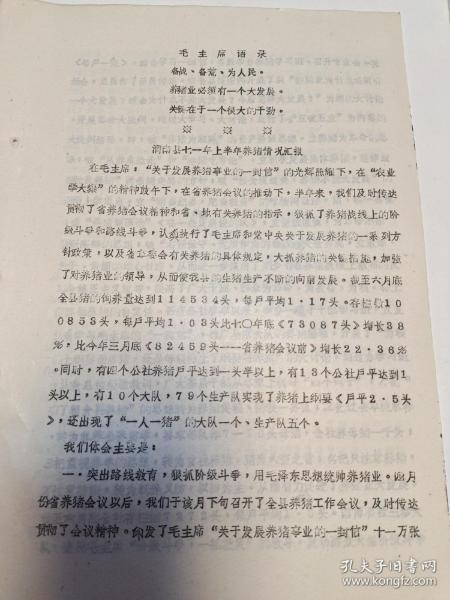 毛主席语录
备战、备荒、为人民。
养猪业必须有一个大发展。
关键在于一个很大的干劲。
※ ※ ※
渭南县七一年上半年养猪情况汇报
在毛主席：“关于发展养猪事业的一封信”的光辉照耀下，在“农业
学大寨”的精神鼓午下，在省养猪会议的推动下，半年来，我们及时传达
贯彻了省养猪会议精神和省、地有关养猪的指示，狠抓了养猪战线上的阶
级斗争和路线斗争，认真执行了毛主席和党中央关于发展养猪的一系列方
针政策，以及省革委会有关养猪的具体规定，大抓养猪的关键措施，加强
了对养猪业的领导，从而使我县的生猪生产不断的向前发展。截至六月底
全县猪的饲养量达到114534头，每户平均1·17头。存栏数10
0853头，每户平均1·03头比七〇年底《73087头》增长38
%，比今年三月底《82459头——省养猪会议前》增长22·36%
。同时，有四个公社养猪户平达到一头半以上，有13个公社户平达到1
头以上，有10个大队，79个生产队实现了养猪上纲要《户平2·5头
》，还出现了“一人一猪”的大队一个、生产队五个。
我们体会主要是：
一·突出路线教育，狠抓阶级斗争，用毛泽东思想统帅养猪业。四月
份省养猪会议以后，我们于该月下旬召开了全县养猪工作会议，及时传达
贯彻了会议精神。印发了毛主席“关于发展养猪事业的一封信”十一万张
孔夫子旧书网
www.kongfz.com